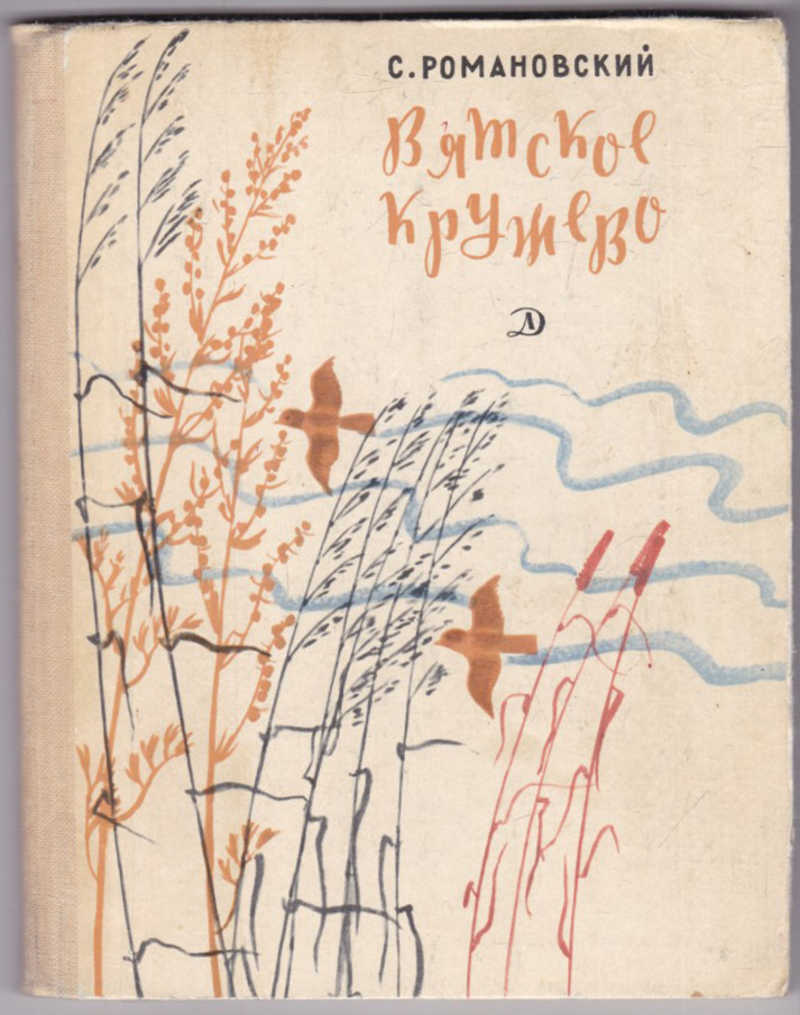 С. РОМАНОВСКИЙ
Вятское
кружево
Д Л